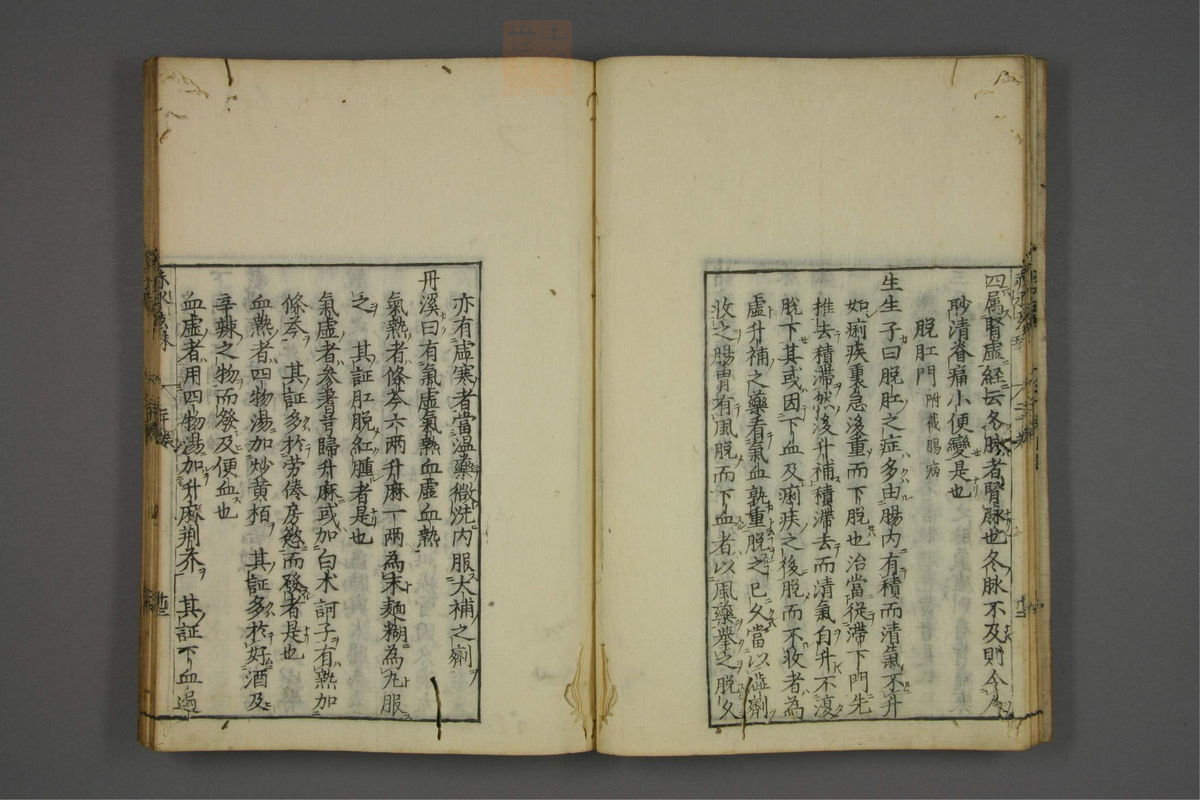 四属腎虛経云冬脉者腎脉也冬脉不及則令
䏚清脊痛小便變是也
脫肛門 附截腸病
生生子曰脫肛之症多由腸内有積而清氣不升
如痢疾裏急後重而下脫也治當從滯下門先
推去積滯然後升補積滯去而清氣自升不復
脫下其或因下血及痢疾之後脫而不收者為
虛升補之藥看氣血孰重脫之已久當以澁劑
收之腸胃有風脫而下血者以風藥舉之脫久
亦有虛寒者當溫藥微洗内服大補之劑
丹溪曰有氣虛氣熱血虛血熱
氣熱者條芩六兩升麻一兩為末麵糊為丸服
之 其証肛脫紅腫者是也
氣虛者參蓍芎歸升麻或加白术訶子有熱加
條芩 其証多於勞倦房慾而發者是也
血熱者四物湯加炒黄栢 其証多於好酒及
辛辣之物而發及便血也
血虛者用四物湯加升麻荆芥 其証下血過